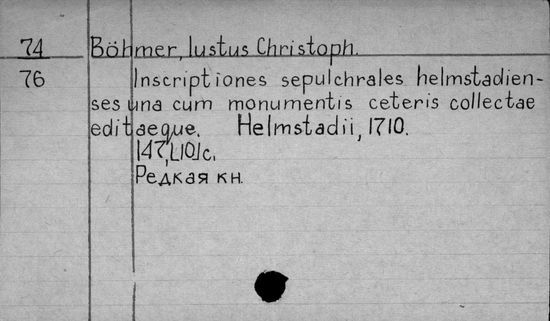 74 Böhmer, Iustus Christoph.
76 Inscriptiones sepulchrales helmstadien-
ses una cum monumentis ceteris collectae
editaeque. Helmstadii, 1710.
147, [10] c.
Редкая кн.